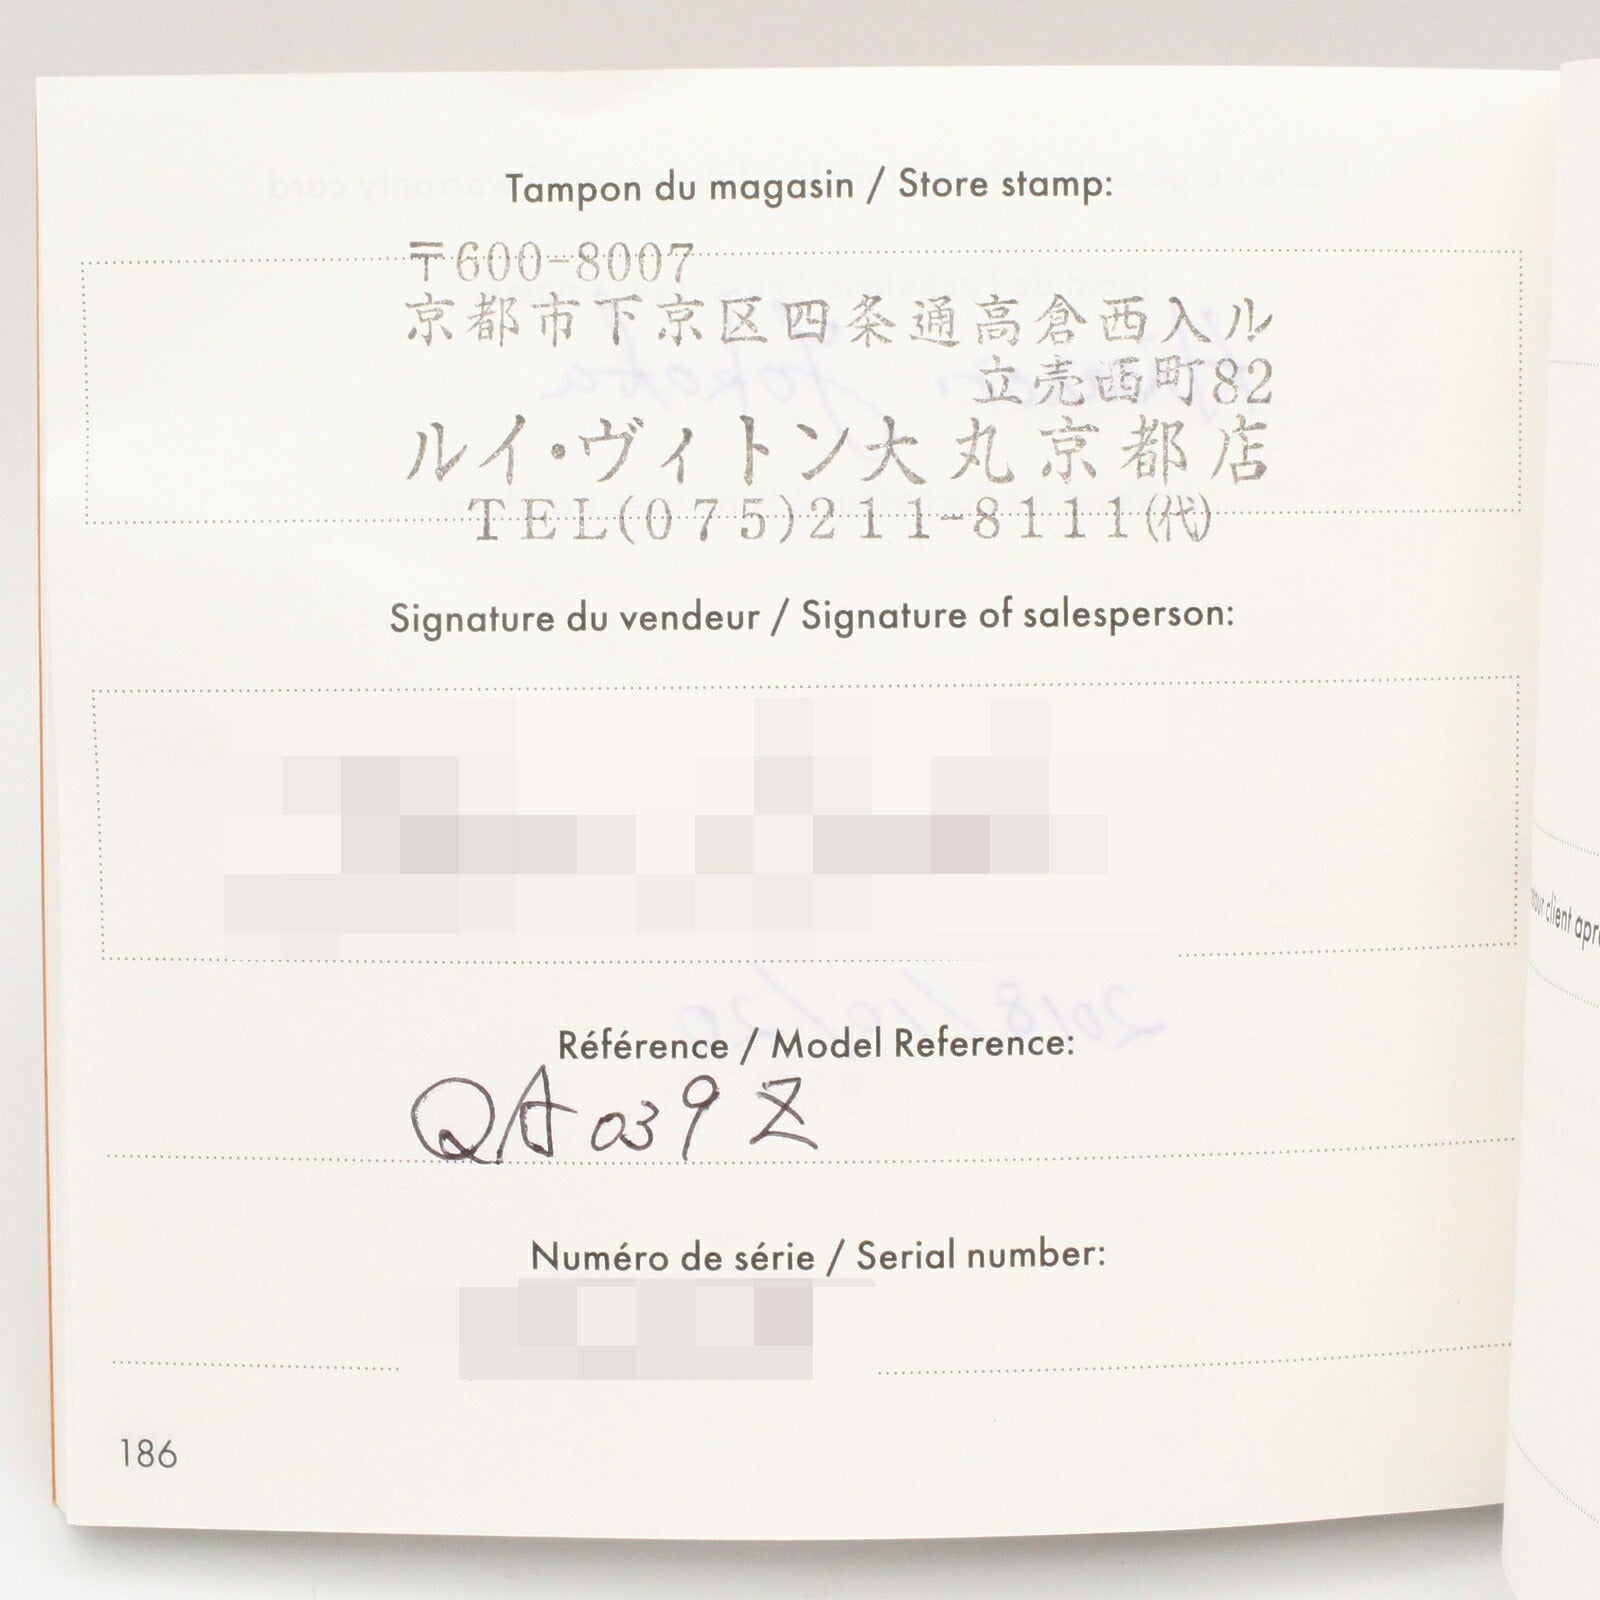 Tampon du magasin / Store stamp:
〒600-8007
京都市下京区四条通高倉西入ル
立売西町82
ルイ・ヴィトン大丸京都店
TEL(075)211-8111(代)
Signature du vendeur / Signature of salesperson:
Référence / Model Reference:
QA039Z
Numéro de série / Serial number:
186
client